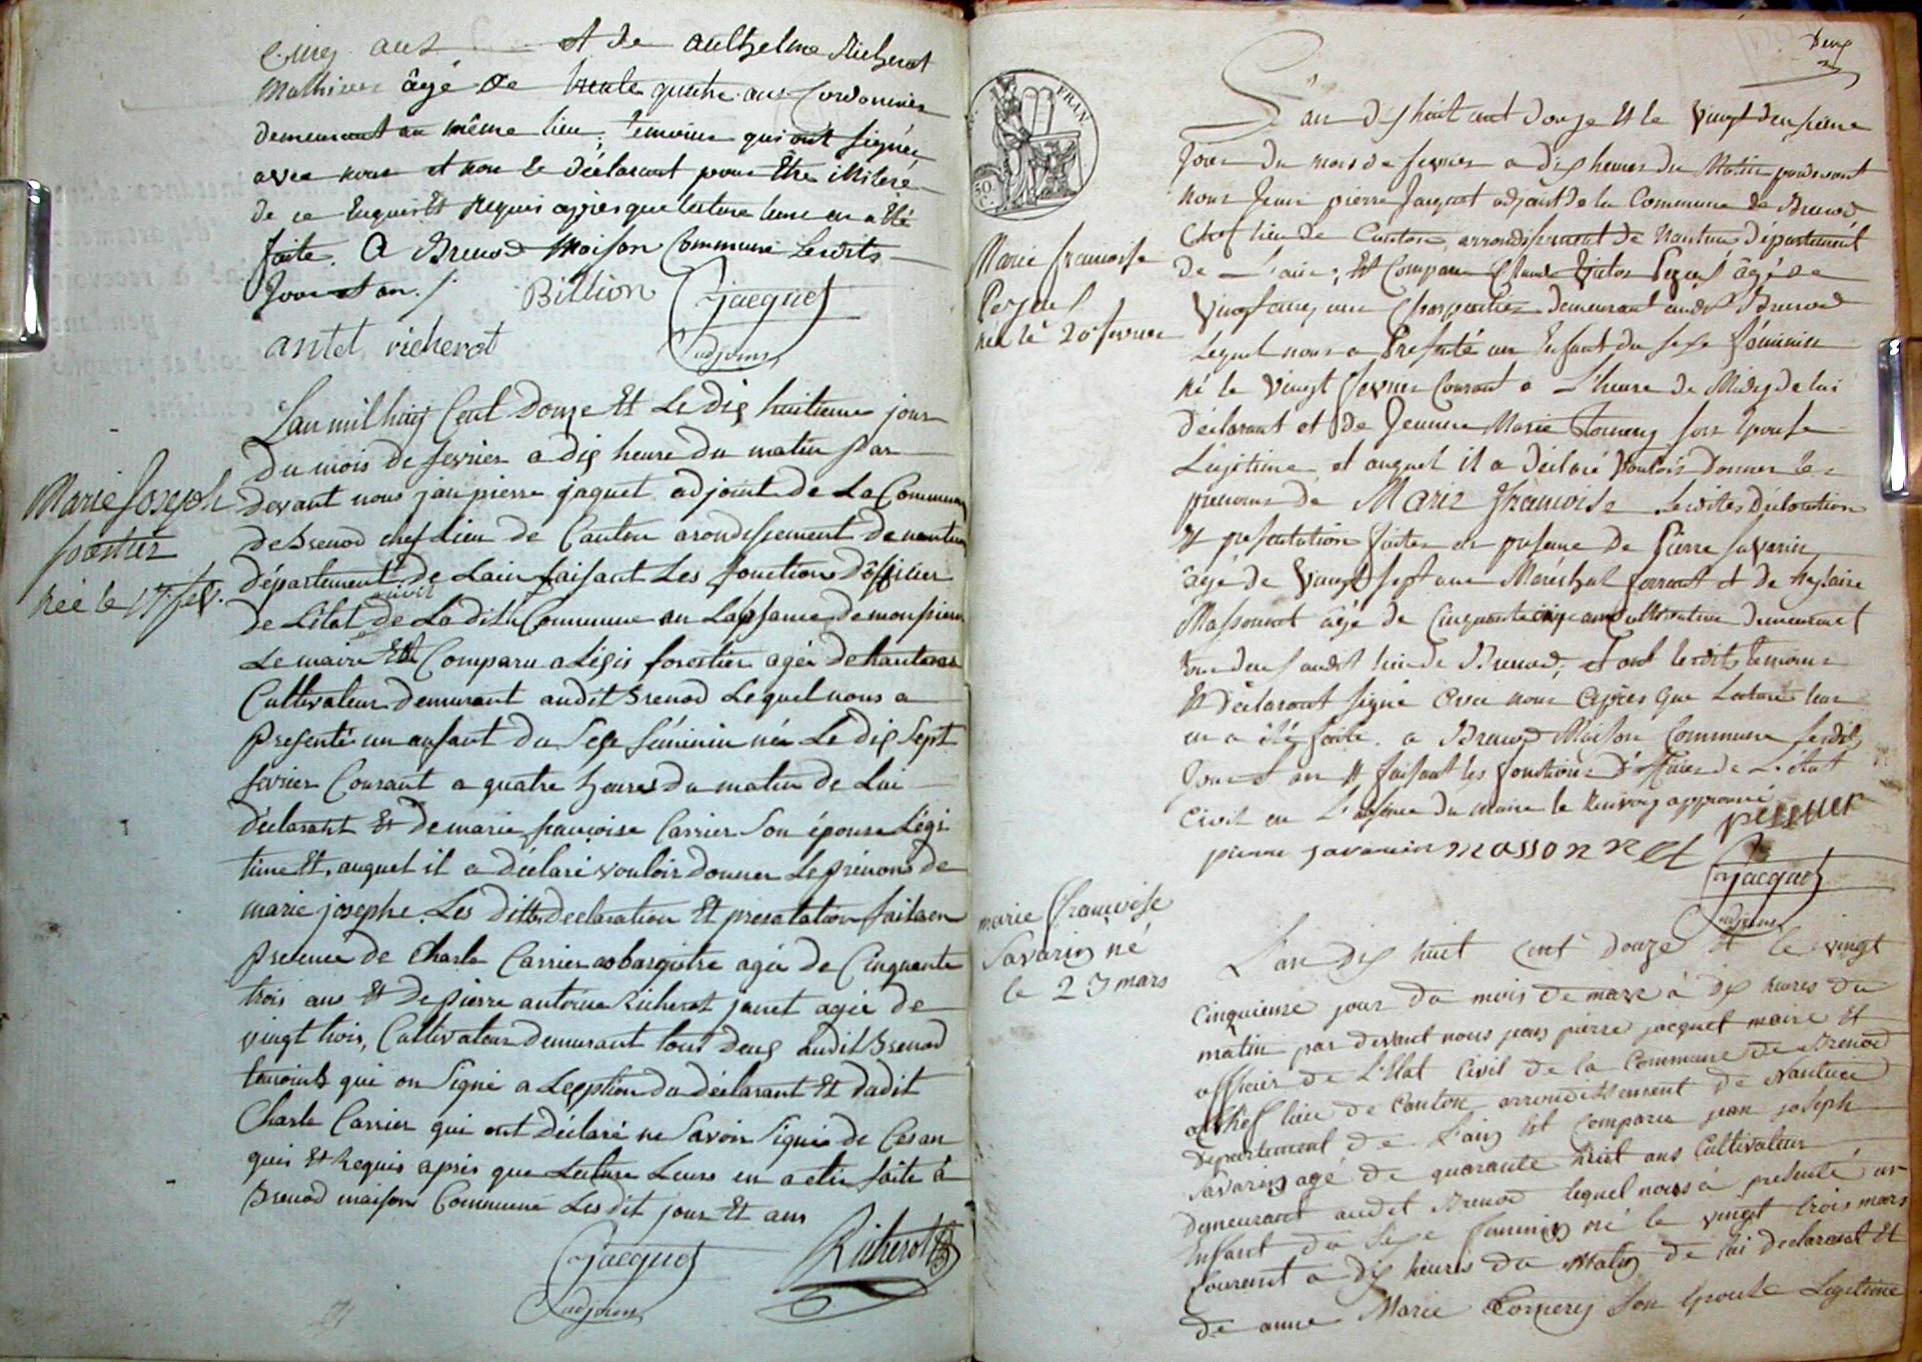 Cinq ans et de anthelme Richerot
Mathieu âgé de trente quatre ans Cordonnier
demeurant au même lieu, temoins qui ont signés
avec nous et non le déclarant pour être illiteré
de ce Enquis Et Requis apprès que lecture leur en a Eté
faite. A Brenod Maison Commune Lesdits
Jour et an ./.
Billion Jacquet
antel richerot adjoint
Marie Joseph
forestier
née le 17 fev.
Lan mil huit Cent Douze Et Le dix huitieme jour
Du mois de fevrier a dix heure Du matin Par
devant nous jan pierre jaquet adjoint de La Commune
de Brenod chef Lieu de Canton arondissement de nantua
département de Lain faisant Les fonctions D'officier
civil
de Létat de La dite Commune en Labsance de monsieur
Le maire Est Comparu aLéxis forestier agée de trente
Cultivateur demurant audit Brenod Lequel nous a
presenté un anfant du Sexe féminin née Le dix Sept
fevrier Courant a quatre heures du matin de Lui
déclarant Et de marie françoise Carrier Son épouse Légi
time Et, auquel il a déclaré vouloir donner Le prénom de
marie josephe. Les dittes declaration Et presatation faites en
presence de Charle Carrier agée de Cinquante
trois ans Et de pierre antoine Richerot janet agée de
vingt trois, Cultivateur demurant tous deux audit Brenod
temoins qui on Signé a Lexption du déclarant Et dudit
Charle Carrier qui ont déclaré ne Savoir Signée de Ces an
quis Et Requis après que Lecture Leurs en a etée faite à
Brenod maison Commune Lesdit jour Et ans
Jacquet Richerot
adjoint
Deux
FRAN
50
Marie francoise
née le 20 fevrier
L'an dix huit cent douze Et le Vingt deuxieme
Jour du mois de fevrier a dix heures du Matin pardevant
nous Jean pierre Jacquet adjoint de la Commune de Brenod
Chef lieu de Canton, arrondissement de Nantua département
de L'ain; Est Comparu Claude Victor âgé de
Vingt cinq ans Charpentier demeurant audit Brenod
Lequel nous a Presenté un Enfant du sexe féminin
né le Vingt fevrier Courant a L'heure de Midy de lui
Déclarant et de Jeanne Marie Tornery son Epouse
Légitime et auquel il a déclaré Vouloir Donner le
prenoms de Marie Françoise Lesdites Déclaration
Et presentation faites en presence de Pierre Savarin
âgé de Vingt sept ans Maréchal ferrant et de hylaire
Massonnet âgé de Cinquante cinq ans Cultivateur demeurant
tous deux audit lieu de Brenod, Et ont lesdits temoins
Et Déclarant signé avec nous Après que Lecture leur
en a été faite. a Brenod Maison Commune lesdits
Jour et an # faisant les fonctions d'officier de L'état
Civil en L'absence du maire le Renvoy approuvé
pierre savarin massonnet
Jacquet
adjoint
marie françoise
Savarin né
le 23 mars
L'an dix huit cent douze Et le vingt
cinquieme jour du mois de mars à dix heures du
matin par devant nous jean pierre jacquet maire Et
officier de L'Etat Civil de la Commune de Brenod
Chef lieu de Canton arrondissement de Nantua
Departement de L'ain Est Comparu jean joseph
Savarin agé de quarante huit ans Cultivateur
Demeurant audit Brenod lequel nous à presenté un
Enfant du Sexe feminin né le vingt trois mars
Courrent a dix heures du Matin de lui declarant Et
de anne Marie Tornery Son Epouse Legitime